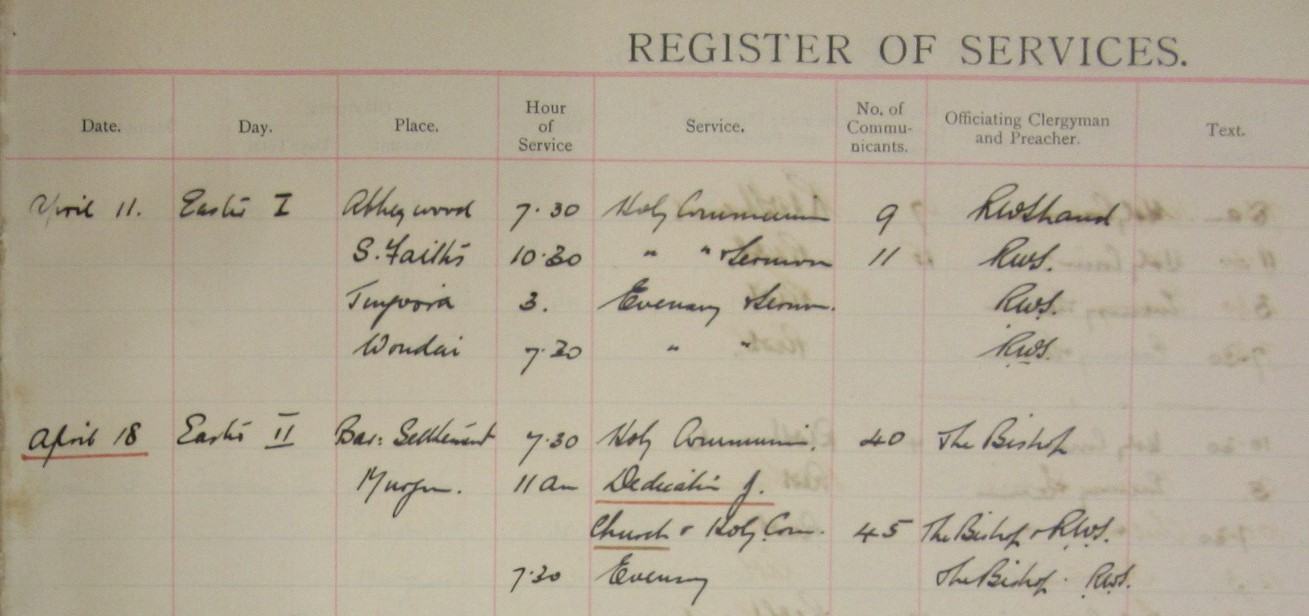 REGISTER OF SERVICES.
Date. Day. Place. Hour of Service Service. No. of Commu-nicants. Officiating Clergyman and Preacher. Text.
April 11. Easter I Abbeywood 7.30 Holy Communion 9 RWShand
S. Faith's 10.30 " " & Sermon 11 RWS.
Tingoora 3. Evensong & Sermon. RWS.
Wondai 7.30 " " RWS.
April 18 Easter II Bar: Settlement 7.30 Holy Communion. 40 The Bishop
Murgon. 11 am Dedication of.
Church & Holy Com. 45 The Bishop & RWS.
7.30 Evensong The Bishop. RWS.